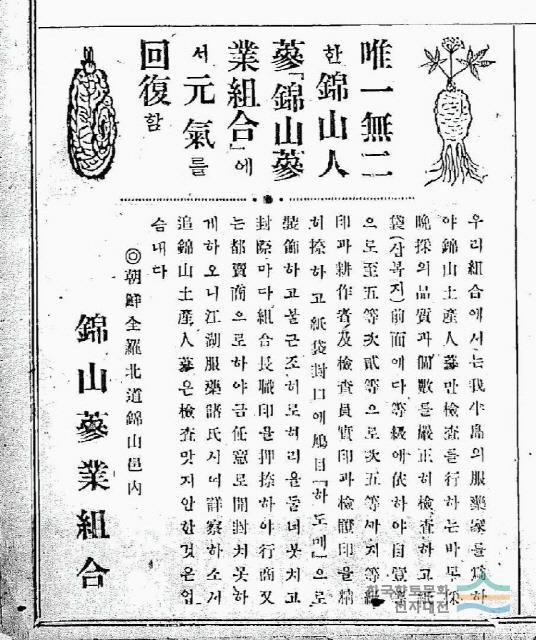 唯一無二
한錦山人
蔘「錦山蔘
業組合」에
서元氣를
回復함
우리組合에서는我半島의服藥家를爲하
야錦山土産人蔘만檢査를行하는바早採
晩採의品質과個數를嚴正히檢査하고紙
袋(삼복지)前面에다等級에依하야自壹等
으로至五等次貳等으로次五等까지等級
印과耕作者及檢査員實印과檢證印을精
히捺하고紙袋封口에鳩目「하도메」으로
裝飾하고붉근조히로허리을둘너붓치고
封際마다組合長職印을押捺하야行商又
는都賣商으로하야금任意로開封치못하
게하오니江湖服藥諸氏 詳察하소서
追錦山土産人蔘은檢査맛지안한것은업
슴내다
◎朝鮮全羅北道錦山邑內
錦山蔘業組合
한국향토문화
전자대전